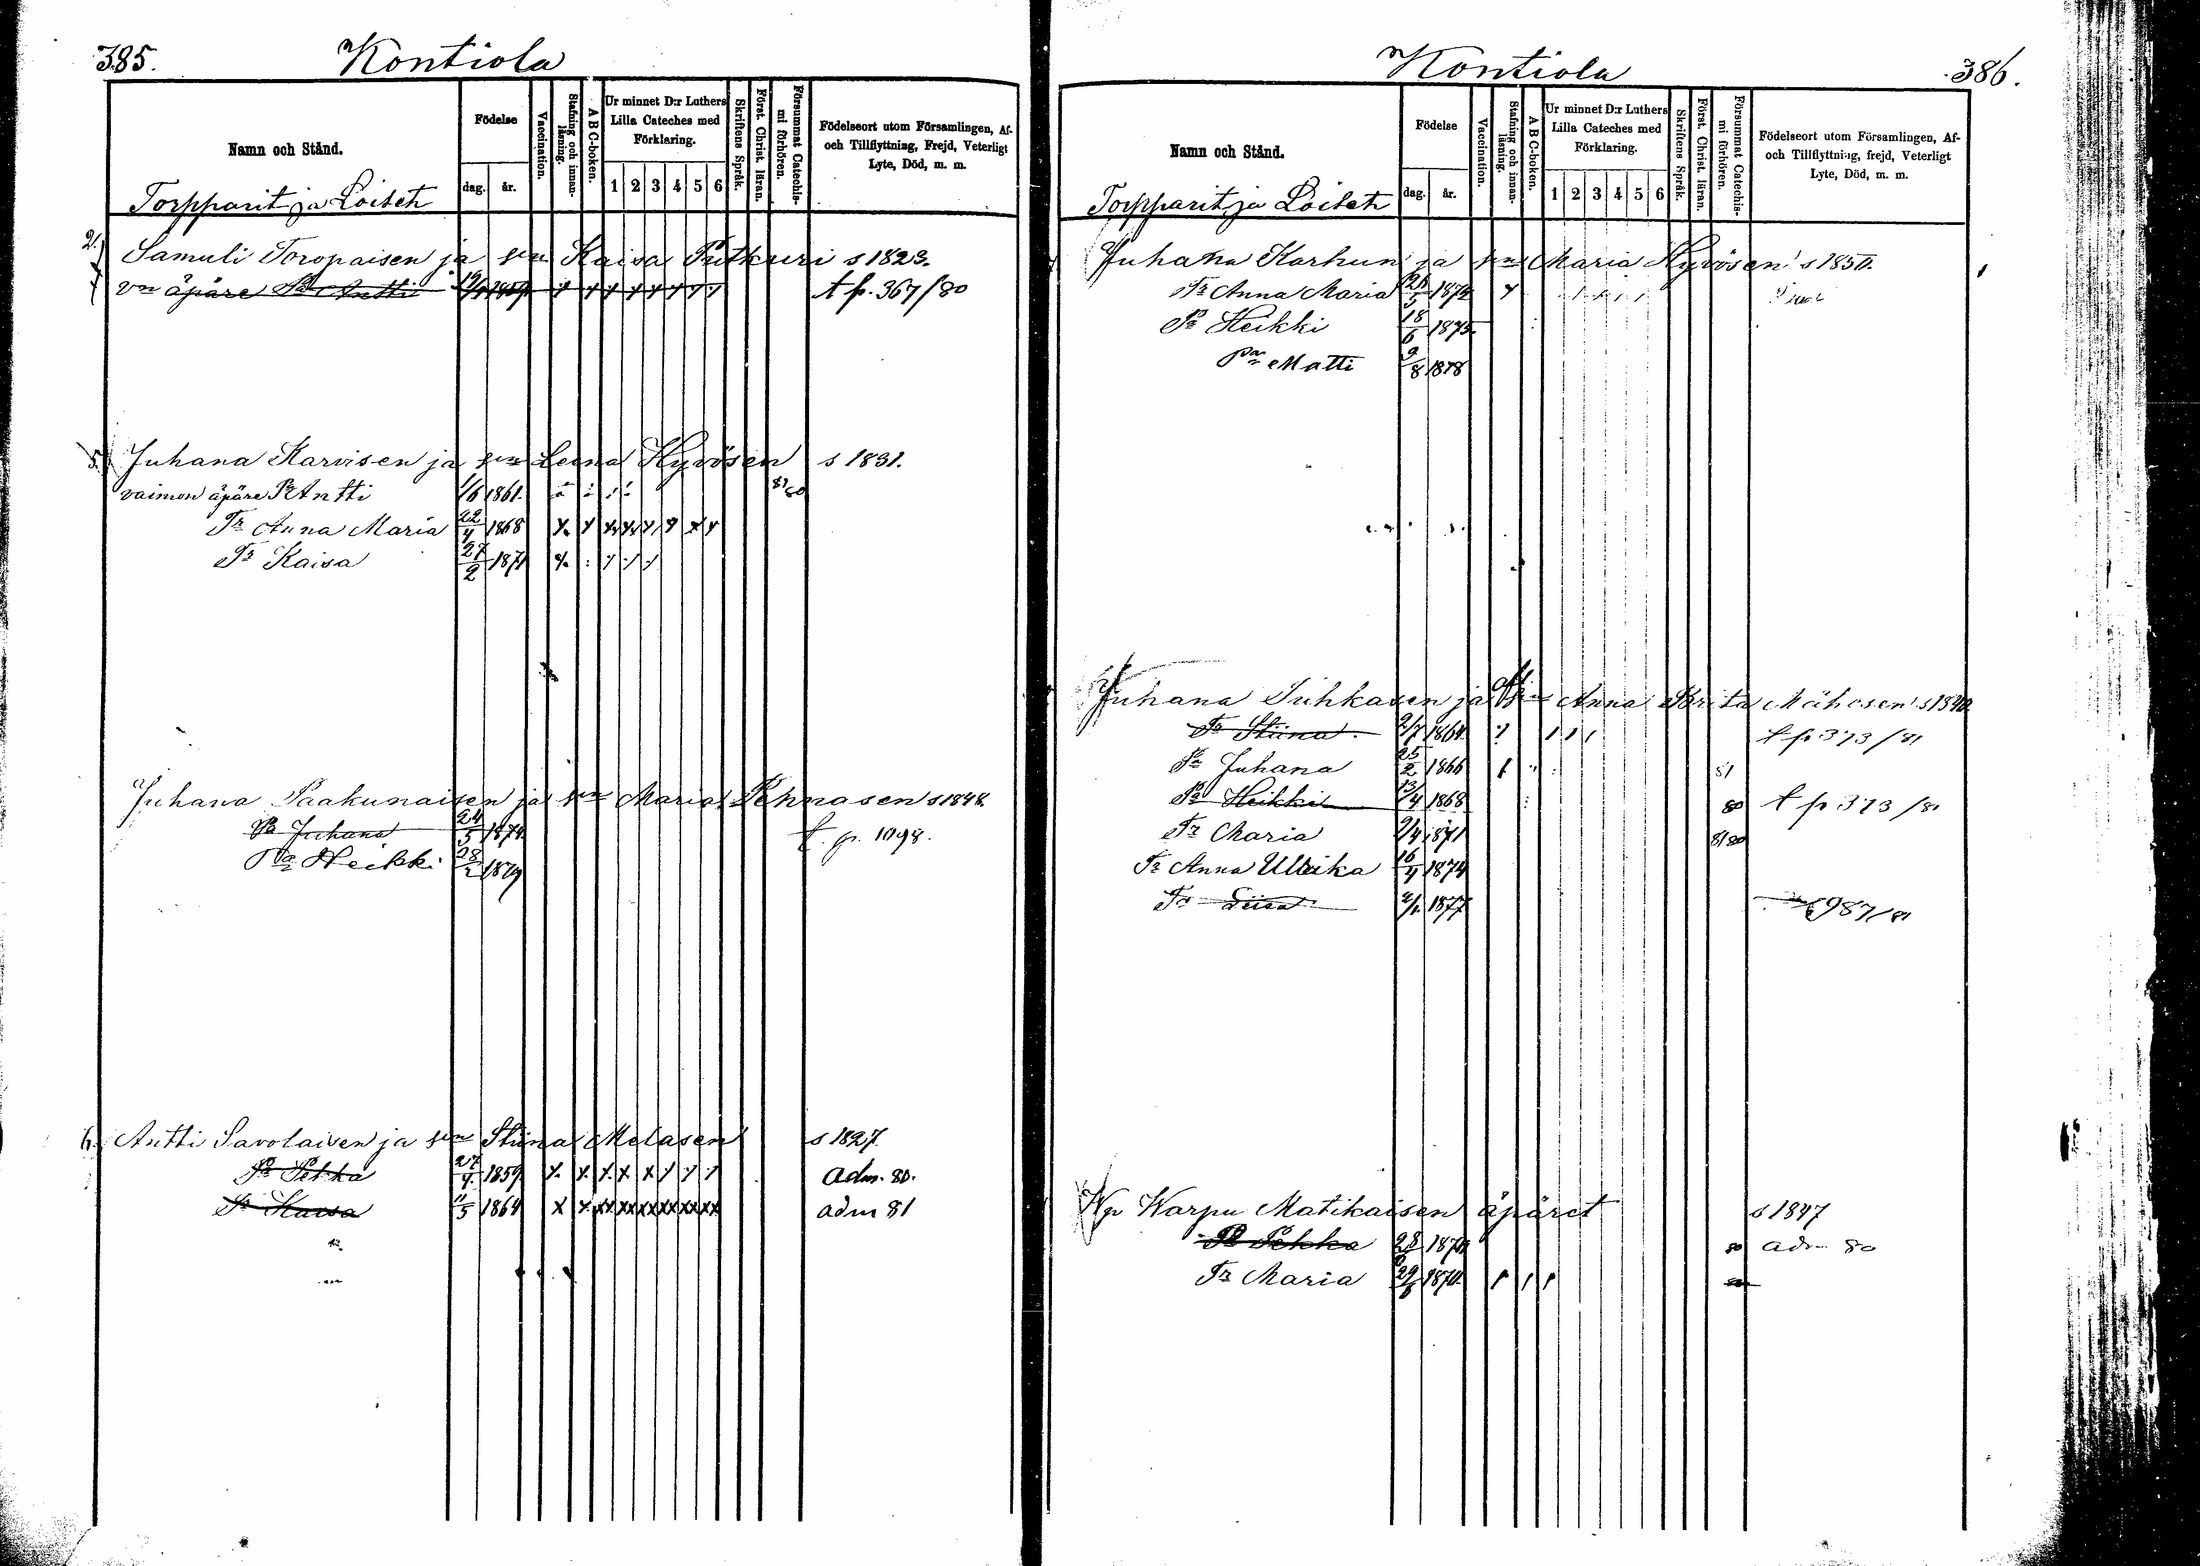 385.
Kontiola
Namn och Stånd.
Födelse
dag.
år.
Vaccination.
Stafning och innan-läsning.
A B C-boken.
Ur minnet D:r Luthers
Lilla Cateches med
Förklaring.
1 2 3 4 5 6
Skriftens Språk.
Först. Christ. läran.
Försummat Catechis-mi förhören.
Födelseort utom Församlingen, Af-
och Tillflyttning, Frejd, Veterligt
Lyte, Död, m. m.
Torpparit ja Loiset
2.
Samuli Toropaisen ja vn Kaisa Putkuri s 1823.
vn äpäre Pa Antti 1859 t p. 367/80
5.
Juhana Karvisen ja vn Leena Hyvösen s 1831.
vaimon äpäre Pa Antti 1/6 1861. 81 80
Tr Anna Maria 22/4 1868
Tr Kaisa 27/2 1871
Juhana Paakunaisen ja vn Maria Pehnasen s 1848.
Pa Juhana 24/5 1874 t. p. 1098.
Pa Heikki 28/2 1879
6.
Antti Savolaisen ja vn Stiina Melasen s 1827
Pa Pekka 27/4 1859 adm. 80.
Tr Kaisa 11/5 1864 adm 81
Kontiola
386.
Namn och Stånd.
Födelse
dag.
år.
Vaccination.
Stafning och innan-läsning.
A B C-boken.
Ur minnet D:r Luthers
Lilla Cateches med
Förklaring.
1 2 3 4 5 6
Skriftens Språk.
Först. Christ. läran.
Försummat Catechis-mi förhören.
Födelseort utom Församlingen, Af-
och Tillflyttning, frejd, Veterligt
Lyte, Död, m. m.
Torpparit ja Loiset
Juhana Karhun ja vn Maria Hyvösen s 1850.
Tr Anna Maria 1872
Pa Heikki 18/6 1875
Pa Matti 9/8 1878
Juhana Puhkasen ja vn Anna Brita Mähösen s 1840
Tr Stiina 2/7 1864 t p 373/81
Pa Juhana 25/2 1866 81
Pa Heikki 13/4 1868 80 t p 373/81
Tr Maria 9/4 1871 81 80
Tr Anna Ulrika 16/4 1874
Tr Liisa 1877 987/81
Np Warpu Matikaisen äpäret s 1847
Pa Pekka 80 adm 80
Tr Maria 1870